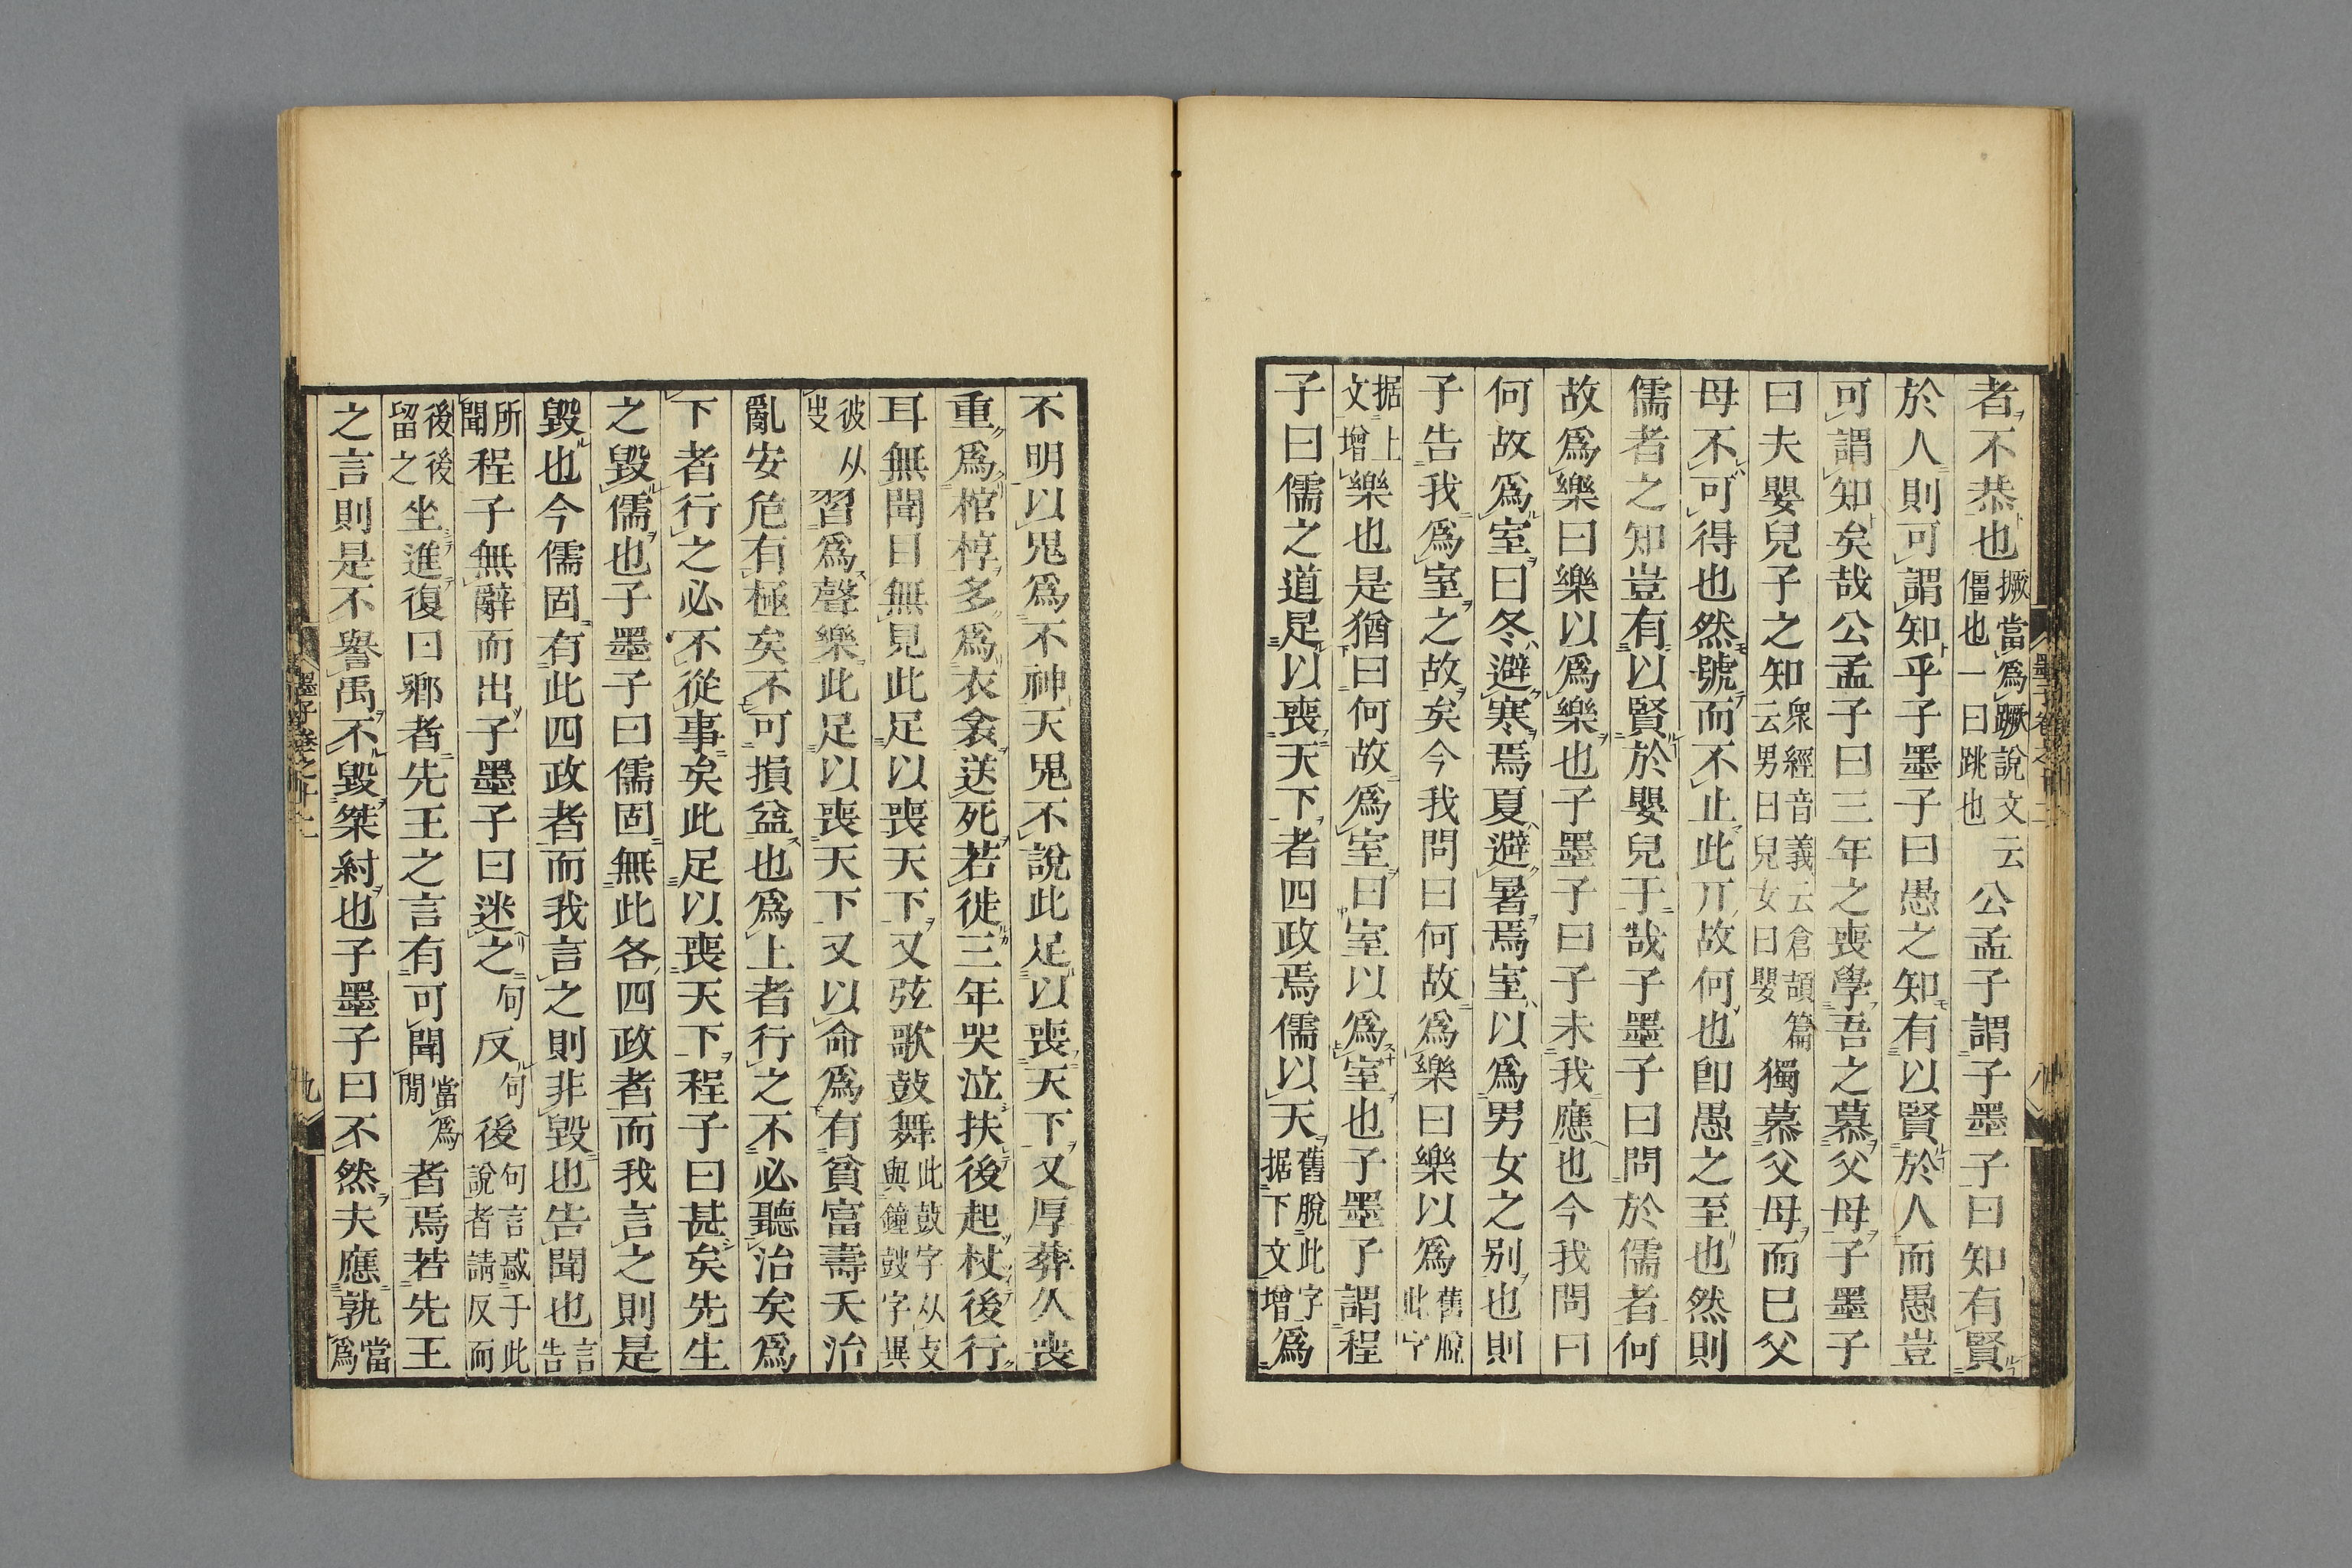 者不恭也撅當爲蹶說文云僵也一曰跳也公孟子謂子墨子曰知有賢
於人則可謂知乎子墨子曰愚之知有以賢於人而愚豈
可謂知矣哉公孟子曰三年之喪學吾之慕父母子墨子
曰夫嬰兒子之知衆經音義云倉頡篇云男曰兒女曰嬰獨慕父母而已父
母不可得也然號而不止此丌故何也卽愚之至也然則
儒者之知豈有以賢於嬰兒于哉子墨子曰問於儒者何
故爲樂曰樂以爲樂也子墨子曰子未我應也今我問曰
何故爲室曰冬避寒焉夏避暑焉室以爲男女之别也則
子告我爲室之故矣今我問曰何故爲樂曰樂以爲舊脫此字
据上文增樂也是猶曰何故爲室曰室以爲室也子墨子謂程
子曰儒之道足以喪天下者四政焉儒以天舊脫此字据下文增爲
不明以鬼爲不神天鬼不說此足以喪天下又厚葬久喪
重爲棺椁多爲衣衾送死若徙三年哭泣扶後起杖後行
耳無聞目無見此足以喪天下又弦歌鼓舞此鼓字从攴與鐘鼓字異
彼从𠬢習爲聲樂此足以喪天下又以命爲有貧富壽夭治
亂安危有極矣不可損益也爲上者行之不必聽治矣爲
下者行之必不從事矣此足以喪天下程子曰甚矣先生
之毀儒也子墨子曰儒固無此各四政者而我言之則是
毀也今儒固有此四政者而我言之則非毀也告聞也言告
所聞程子無辭而出子墨子曰迷之句反句後句言惑于此說者請反而
後後留之坐進復曰鄉者先王之言有可聞當爲閒者焉若先王
之言則是不譽禹不毀桀紂也子墨子曰不然夫應孰當爲
墨子卷之十二
八
墨子卷之十二
九